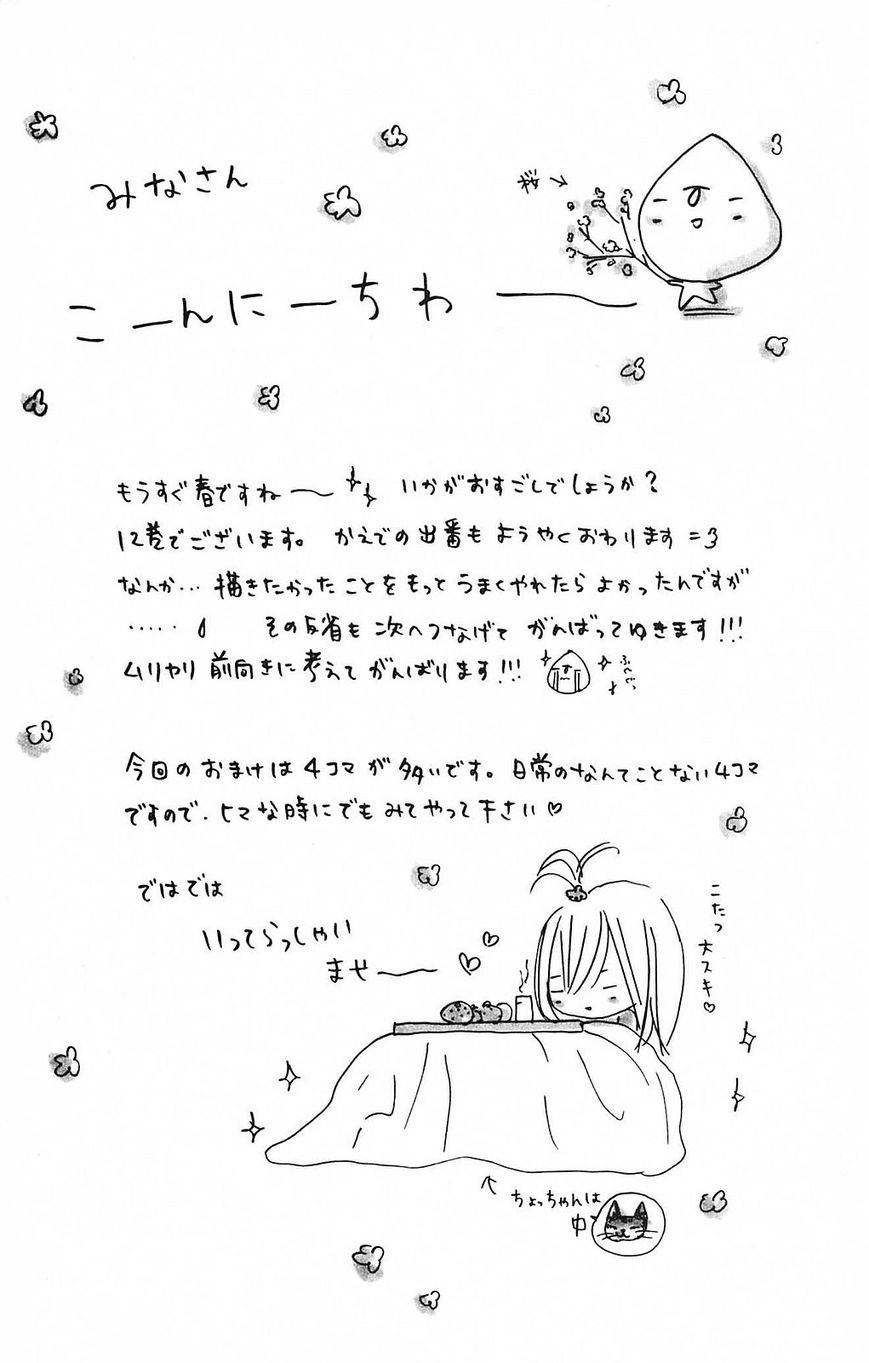 みなさん
桜→
こーんにーちわー
もうすぐ春ですね〜 いかがおすごしでしょうか?
12巻でございます。 かえでの出番も ようやくおわります=3
なんか… 描きたかったことをもっと うまくやれたら よかったんですが
‥‥‥ その反省も 次へつなげて がんばってゆきます!!!
ムリヤリ 前向きに考えて がんばります!!!
今回の おまけは 4コマが多いです。 日常のなんてことない4コマ
ですので、ヒマな時にでも みてやって下さい♡
ではでは
いってらっしゃい
ませ〜
こたつ
大スキ♡
ちょっちゃんは
中